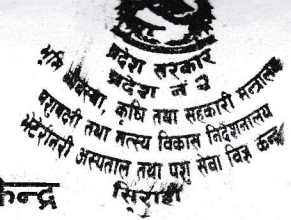 प्रदेश सरकार
प्रदेश नं २
भूमि व्यवस्था, कृषि तथा सहकारी मन्त्रालय
पशुपन्छी तथा मत्स्य विकास निर्देशनालय
भेटेरीनरी अस्पताल तथा पशु सेवा विज्ञ केन्द्र
सिराहा
केन्द्र